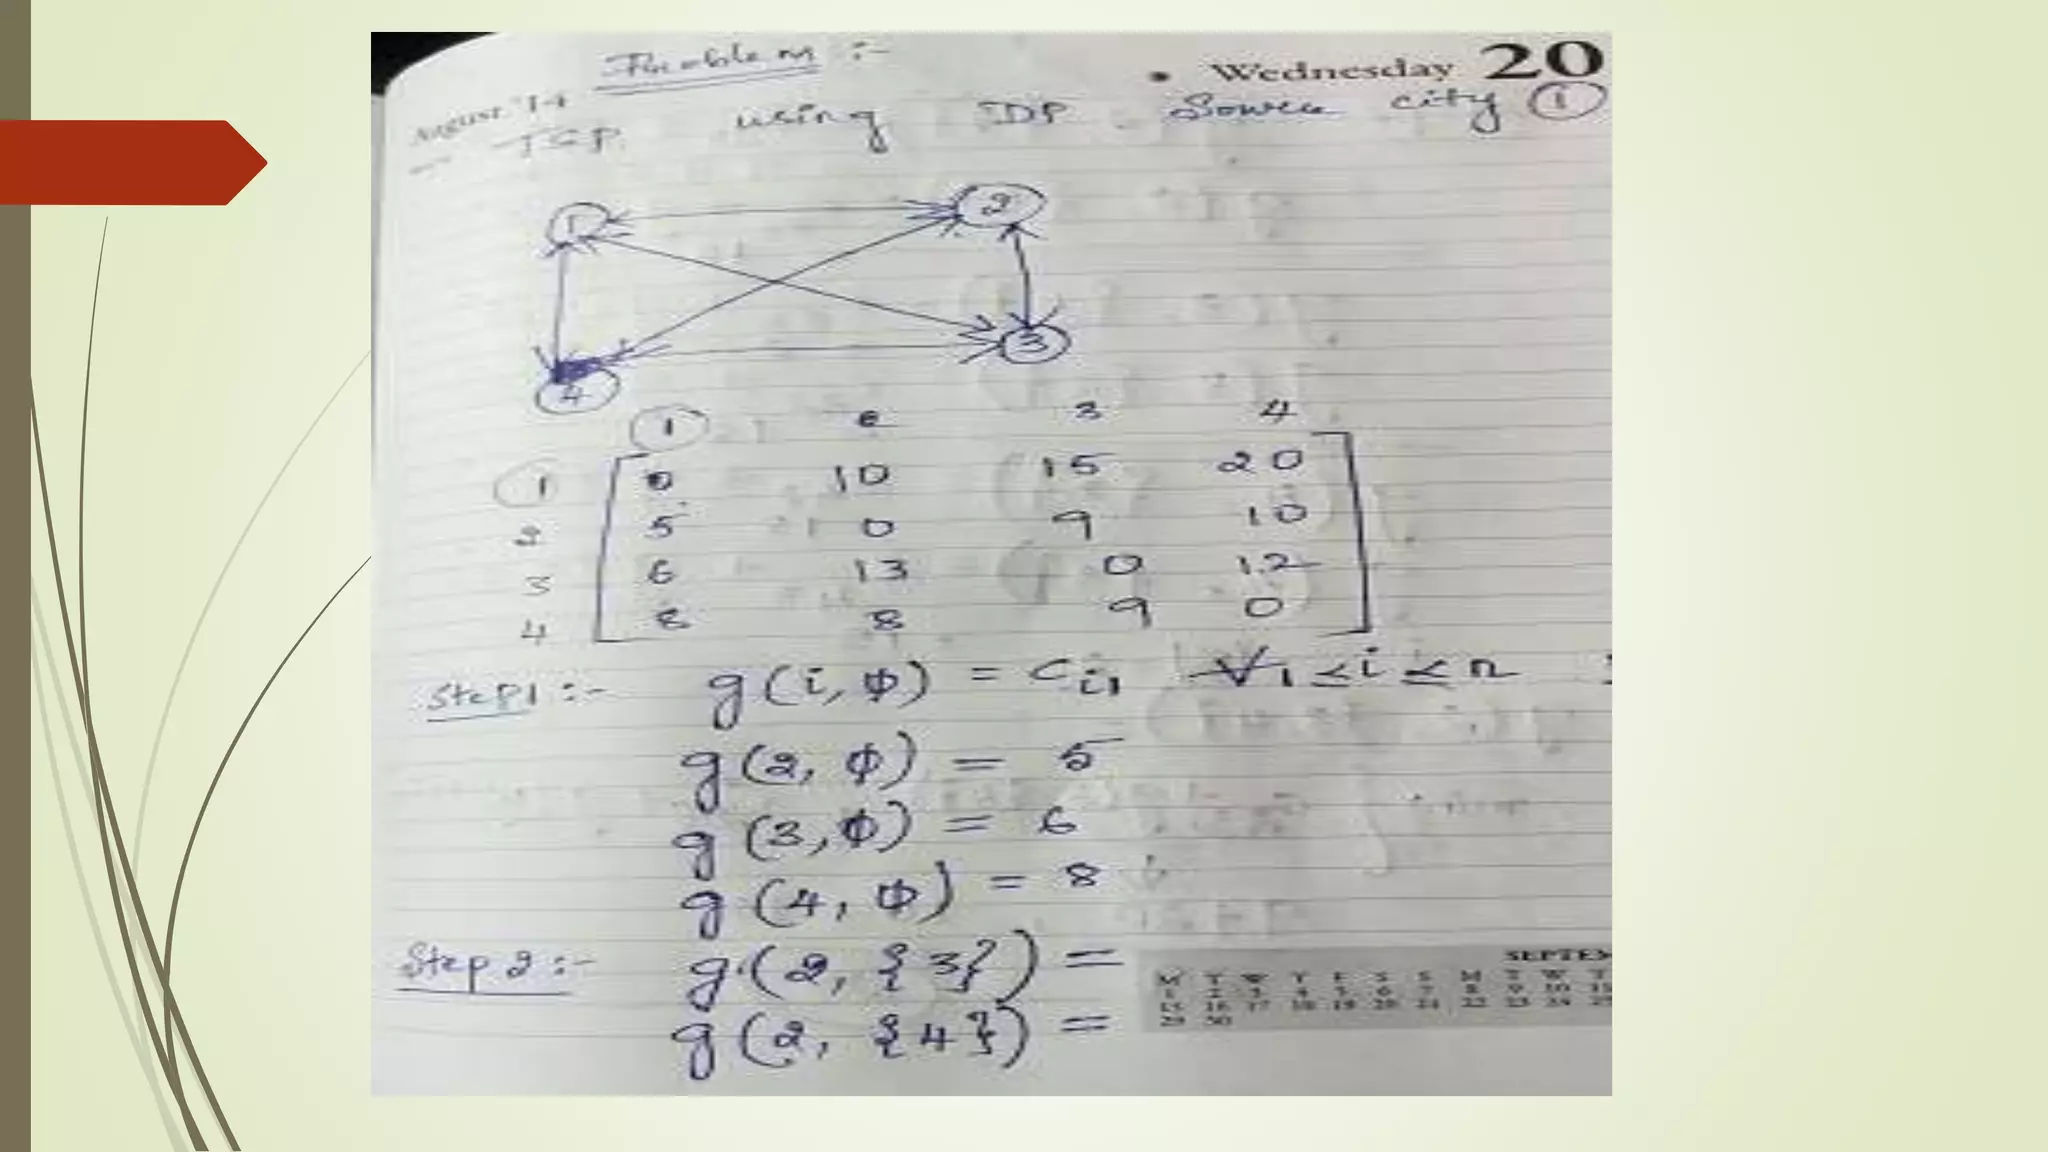 Problem :-
• Wednesday 20
August '14
TSP using DP Source city 1
1 2
4 3
1 2 3 4
1 0 10 15 20
2 5 0 9 10
3 6 13 0 12
4 8 8 9 0
Step 1 :- g(i, φ) = Ci1 ∀ 1 ≤ i ≤ n
g(2, φ) = 5
g(3, φ) = 6
g(4, φ) = 8
Step 2 :- g(2, {3}) =
g(2, {4}) =
SEPTEM
M T W T F S S M T W T
1 2 3 4 5 6 7 8 9 10 11
15 16 17 18 19 20 21 22 23 24 25
29 30